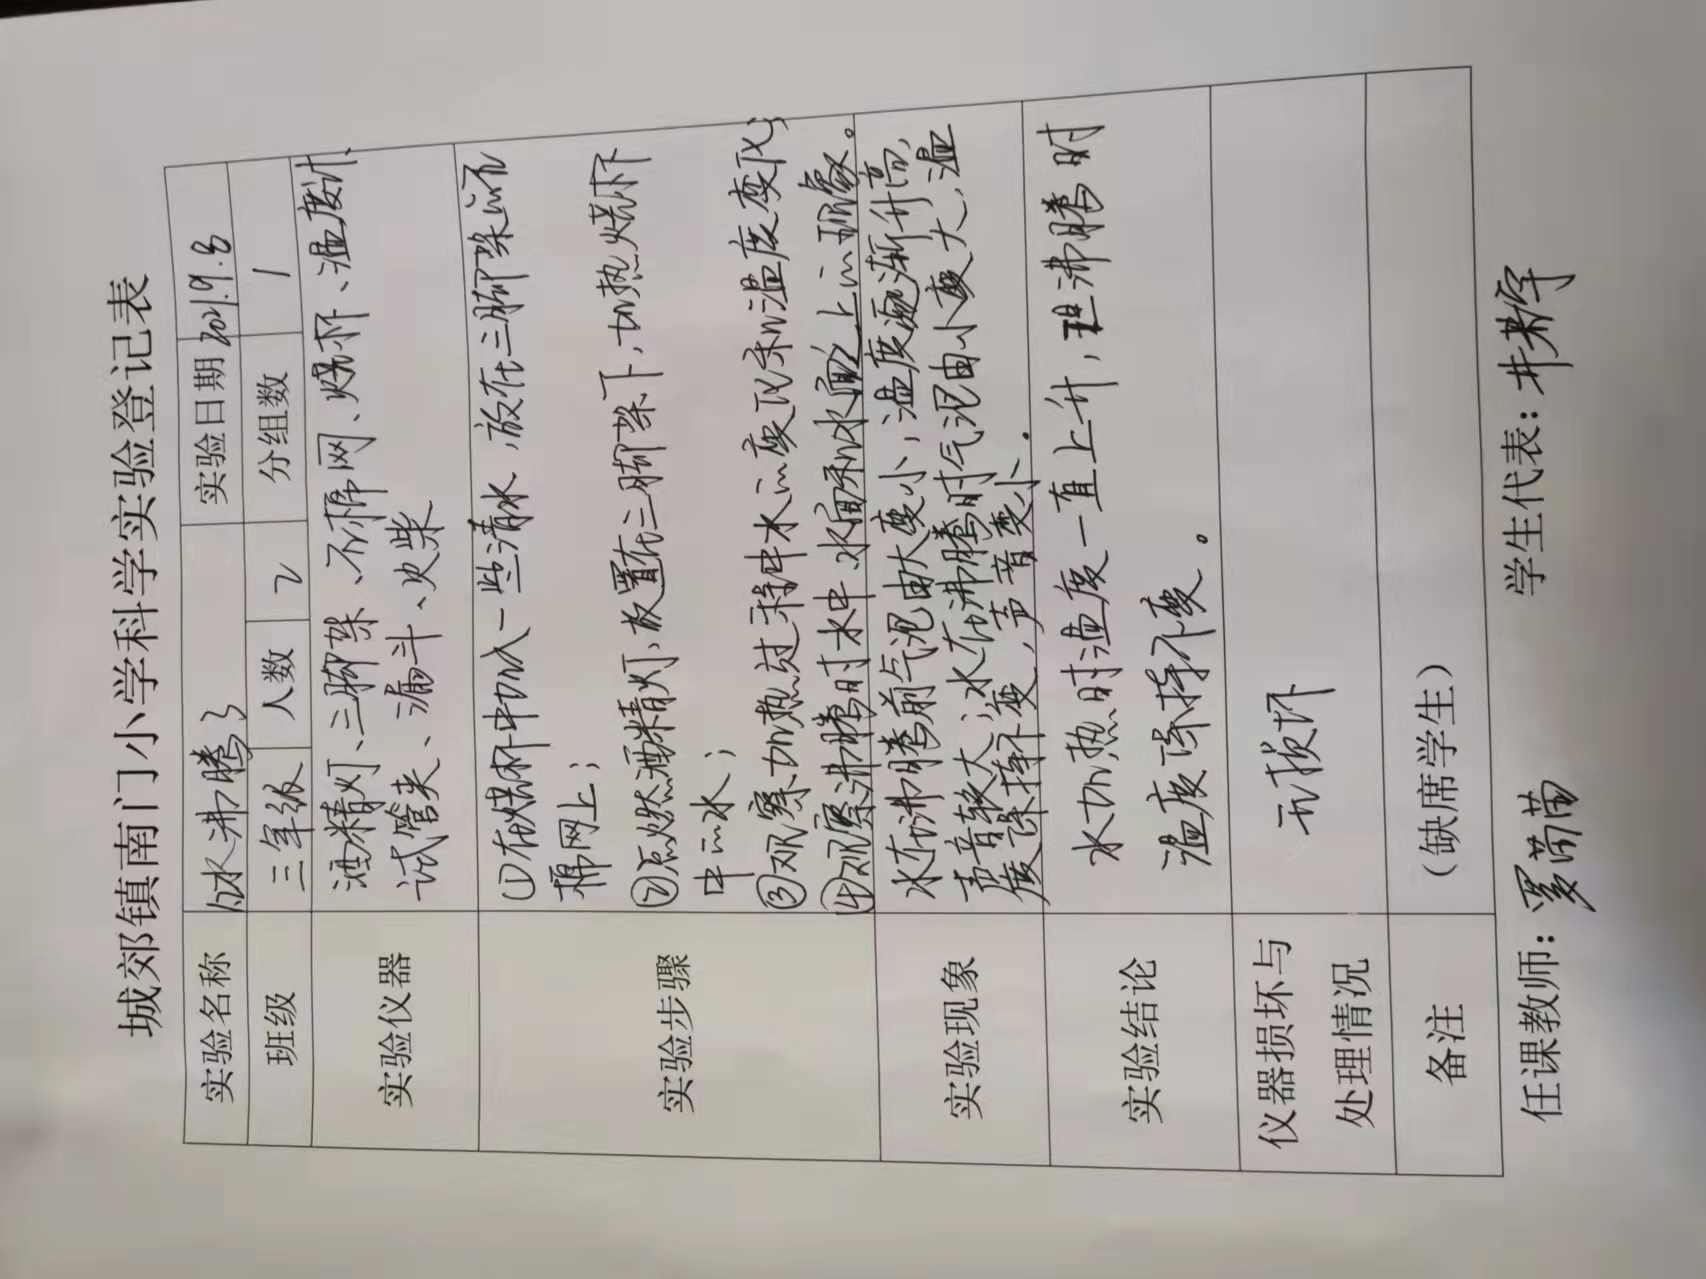 城郊镇南门小学科学实验登记表
实验名称 水沸腾了 实验日期 2021.9.8
班级 三年级 人数 2 分组数 1
实验仪器 酒精灯、三脚架、石棉网、烧杯、温度计、
试管夹、漏斗、火柴
实验步骤 ①在烧杯中加入一些清水,放在三脚架的石
棉网上;
②点燃酒精灯,放置在三脚架下,加热烧杯
中的水;
③观察加热过程中水的变化和温度变化;
④观察沸腾时水中、水面和水面上的现象。
实验现象 水在沸腾前气泡由大变小,温度逐渐升高,
声音较大;水在沸腾时气泡由小变大,温
度保持不变,声音变小.
实验结论 水加热时温度一直上升,但沸腾时
温度保持不变。
仪器损坏与
处理情况 无损坏
备注 (缺席学生)
任课教师: 学生代表: